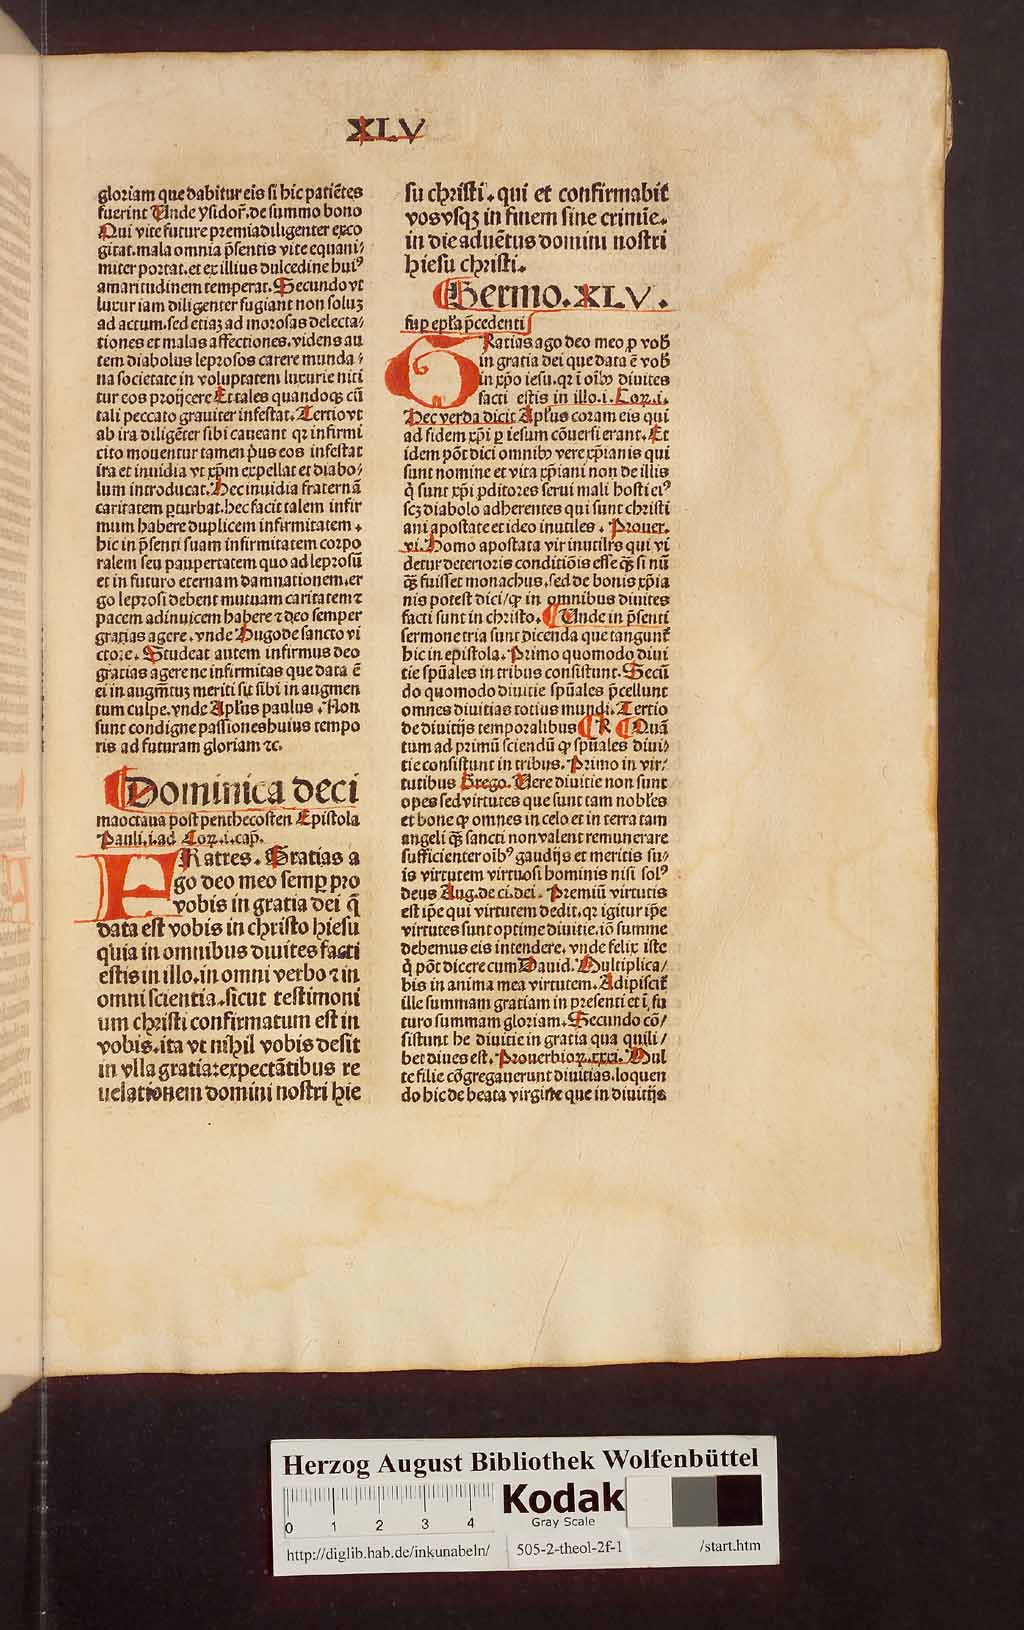 XLV
gloriam que dabitur eis si hic patiẽtes
fuerint Unde ysidor̃. de summo bono
Qui vite future premia diligenter exco
gitat. mala omnia p̃sentis vite equani⸗
miter portat. et ex illius dulcedine huiꝰ
amaritudinem temperat. Secundo vt
luxuriam diligenter fugiant non soluꝫ
ad actum. sed etiaꝫ ad morosas delecta⸗
tiones et malas affectiones. videns au
tem diabolus leprosos carere munda⸗
na societate in voluptatem luxurie niti
tur eos proijcere Et tales quandoqꝫ cũ
tali peccato grauiter infestat. Tertio vt
ab ira diligẽter sibi caueant qꝛ infirmi
cito mouentur tamen p̃us eos infestat
ira et inuidia vt xp̃m expellat et diabo⸗
lum introducat. Hec inuidia fraternã
caritatem ꝑturbat. hec facit talem infir
mum habere duplicem infirmitatem.
hic in p̃senti suam infirmitatem corpo
ralem seu paupertatem quo ad leprosũ
et in futuro eternam damnationem. er
go leprosi debent mutuam caritatem ⁊
pacem adinuicem habere ⁊ deo semper
gratias agere. vnde Hugo de sancto vi
ctore. Studeat autem infirmus deo
gratias agere ne infirmitas que data ẽ
ei in augm̃tuꝫ meriti sit sibi in augmen
tum culpe. vnde Apl̃us paulus. Non
sunt condigne passiones huius tempo
ris ad futuram gloriam ⁊c.
Dominica deci
maoctaua post penthecosten Epistola
Pauli. i. ad Coꝝ. i. cap̃.
FRatres. Gratias a
go deo meo semꝑ pro
vobis in gratia dei q̃
data est vobis in christo hiesu
quia in omnibus diuites facti
estis in illo. in omni verbo ⁊ in
omni scientia. sicut testimoni
um christi confirmatum est in
vobis. ita vt nihil vobis desit
in vlla gratia: expectãtibus re
uelationem domini nostri hie
su christi. qui et confirmabit
vos vsqꝫ in finem sine crimĩe.
in die aduẽtus domini nostri
hiesu christi.
Sermo. XLV.
suꝑ epl̃a p̃cedenti
GRatias ago deo meo ꝑ vob
in gratia dei que data ẽ vob
in xp̃o iesu. qꝛ ĩ oĩbꝰ diuites
facti estis in illo. i. Coꝝ. i.
Hec verba dicit Apl̃us coram eis qui
ad fidem xp̃i ꝑ iesum cõuersi erant. Et
idem põt dici omnibꝰ vere xp̃ianis qui
sunt nomine et vita xp̃iani non de illis
q̃ sunt xp̃i ꝑditores serui mali hosti eiꝰ
scꝫ diabolo adherentes qui sunt christi
ani apostate et ideo inutiles. Prouer.
vi. Homo apostata vir inutilis qui vi
detur deterioris conditiõis esse q̃ꝫ si nũ
q̃ꝫ fuisset monachus. sed de bonis xp̃ia
nis potest dici / ꝙ in omnibus diuites
facti sunt in christo. Unde in p̃senti
sermone tria sunt dicenda que tangunt̃
hic in epistola. Primo quomodo diui
tie spũales in tribus consistunt. Secũ
do quomodo diuitie spũales p̃cellunt
omnes diuitias totius mundi. Tertio
de diuitijs temporalibus R Quã
tum ad primũ sciendũ ꝙ spũales diui⸗
tie consistunt in tribus. Primo in vir⸗
tutibus Grego. Vere diuitie non sunt
opes sed virtutes que sunt tam nobles
et bone ꝙ omnes in celo et in terra tam
angeli q̃ꝫ sancti non valent remunerare
sufficienter oĩbꝰ gaudijs et meritis su⸗
is virtutem virtuosi hominis nisi solꝰ
deus Aug. de ci. dei. Premiũ virtutis
est ip̃e qui virtutem dedit. qꝛ igitur ip̃e
virtutes sunt optime diuitie. iõ summe
debemus eis intendere. vnde felix iste
q̃ põt dicere cum Dauid. Multiplica⸗
bis in anima mea virtutem. Adipiscit̃
ille summam gratiam in presenti et ĩ fu
turo summam gloriam. Secundo cõ⸗
sistunt he diuitie in gratia qua quili⸗
bet diues est. Prouerbioꝝ. xxxi. Mul
te filie cõgregauerunt diuitias. loquen
do hic de beata virgine que in diuitijs
Herzog August Bibliothek Wolfenbüttel
0 1 2 3 4
Kodak
Gray Scale
http://diglib.hab.de/inkunabeln/ 505-2-theol-2f-1 /start.htm